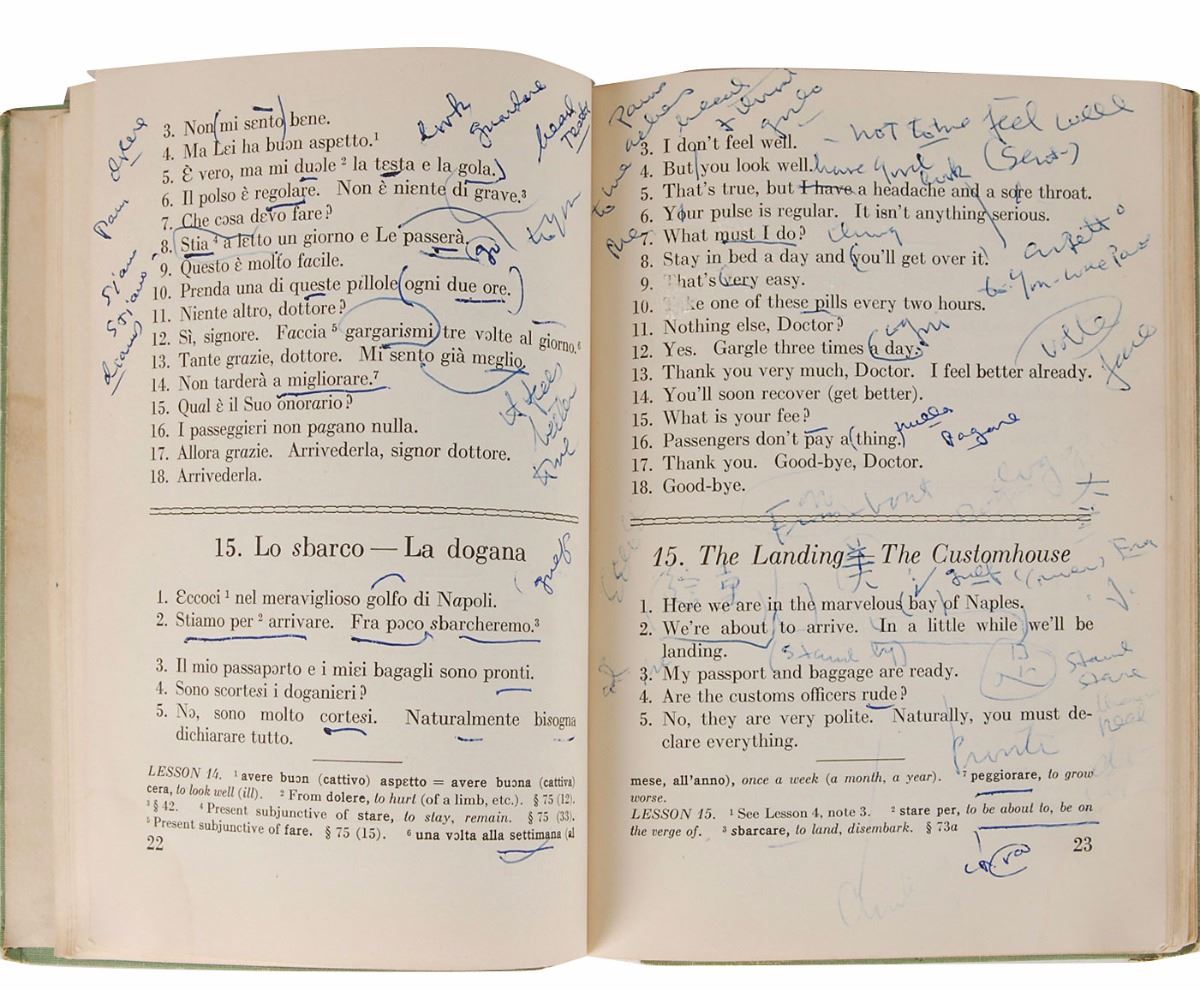 3. Non mi sento bene.
4. Ma Lɛi ha buɔn aspetto.¹
5. Ɛ vero, ma mi duɔle ² la tɛsta e la gola.
6. Il polso ɛ̀ regolare. Non ɛ̀ niɛnte di grave.³
7. Che cosa dɛvo fare?
8. Stia ⁴ a lɛtto un giorno e Le passerà.
9. Questo ɛ̀ molto facile.
10. Prɛnda una di queste pillole ogni due ore.
11. Niɛnte altro, dottore?
12. Sì, signore. Faccia ⁵ gargarismi tre vɔlte al giorno.⁶
13. Tante grazie, dottore. Mi sɛnto già mɛglio.
14. Non tarderà a migliorare.⁷
15. Qual ɛ̀ il Suo onorario?
16. I passeggiɛri non pagano nulla.
17. Allora grazie. Arrivederla, signor dottore.
18. Arrivederla.
15. Lo sbarco — La dogana
1. Ɛccoci ¹ nel meraviglioso golfo di Napoli.
2. Stiamo per ² arrivare. Fra pɔco sbarcheremo.³
3. Il mio passapɔrto e i miɛi bagagli sono pronti.
4. Sono scortesi i doganiɛri?
5. Nɔ, sono molto cortesi. Naturalmente bisogna
dichiarare tutto.
LESSON 14. ¹ avere buɔn (cattivo) aspetto = avere buɔna (cattiva)
cera, to look well (ill). ² From dolere, to hurt (of a limb, etc.). § 75 (12).
³ § 42. ⁴ Present subjunctive of stare, to stay, remain. § 75 (33).
⁵ Present subjunctive of fare. § 75 (15). ⁶ una vɔlta alla settimana (al
22
look
guardare
head
to you
go
it feels
better
time
gulf
3. I don't feel well.
4. But you look well.
5. That's true, but I have a headache and a sore throat.
6. Your pulse is regular. It isn't anything serious.
7. What must I do?
8. Stay in bed a day and you'll get over it.
9. That's very easy.
10. Take one of these pills every two hours.
11. Nothing else, Doctor?
12. Yes. Gargle three times a day.
13. Thank you very much, Doctor. I feel better already.
14. You'll soon recover (get better).
15. What is your fee?
16. Passengers don't pay a thing.
17. Thank you. Good-bye, Doctor.
18. Good-bye.
15. The Landing — The Customhouse
1. Here we are in the marvelous bay of Naples.
2. We're about to arrive. In a little while we'll be
landing.
3. My passport and baggage are ready.
4. Are the customs officers rude?
5. No, they are very polite. Naturally, you must de-
clare everything.
mese, all'anno), once a week (a month, a year). ⁷ peggiorare, to grow
worse.
LESSON 15. ¹ See Lesson 4, note 3. ² stare per, to be about to, be on
the verge of. ³ sbarcare, to land, disembark. § 73a
23
- not to me feel well
have good look
thing
volte
pagare
gulf
Fra
(stand by)
stand
stare
Pronti